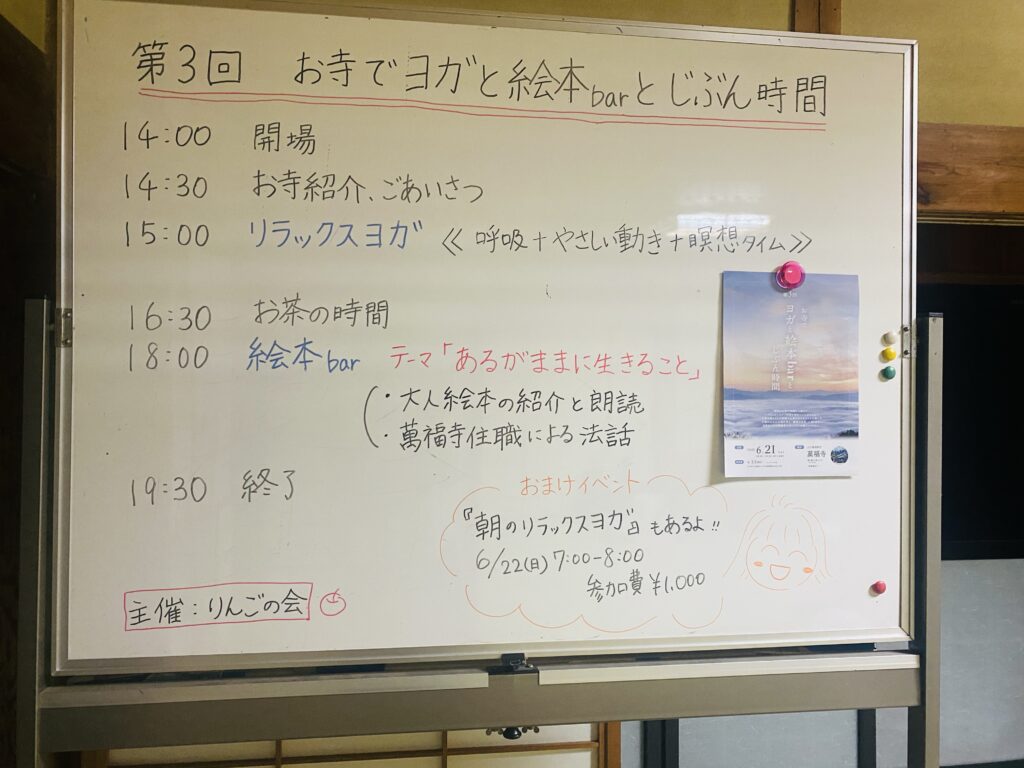 第3回 お寺でヨガと絵本barとじぶん時間
14:00 開場
14:30 お寺紹介、ごあいさつ
15:00 リラックスヨガ 《呼吸+やさしい動き+瞑想タイム》
16:30 お茶の時間
18:00 絵本bar テーマ「あるがままに生きること」
・大人絵本の紹介と朗読
・萬福寺住職による法話
19:30 終了
おまけイベント
『朝のリラックスヨガ』もあるよ!!
6/22(日)7:00-8:00
参加費¥1,000
主催:りんごの会
第3回
お寺で
ヨガと絵本barと
じぶん時間
6.21
萬福寺